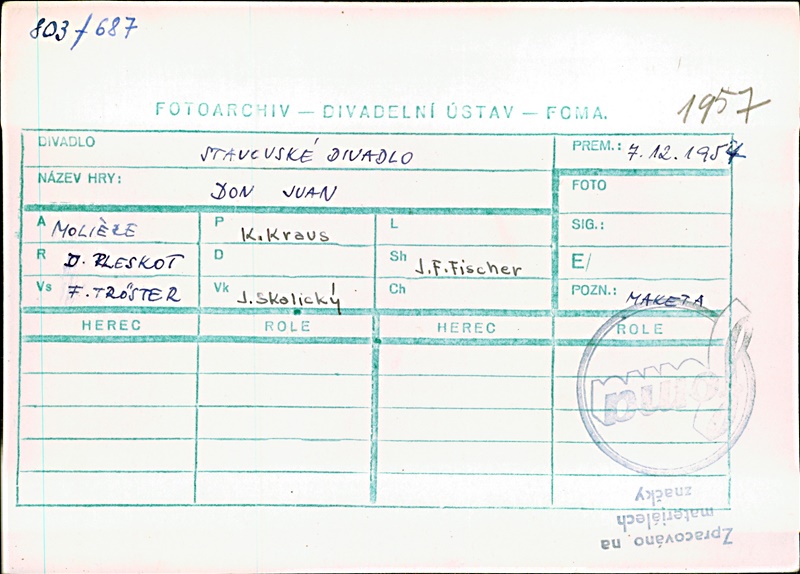 803/687
1957
FOTOARCHIV — DIVADELNÍ ÚSTAV — FOMA.
DIVADLO STAVOVSKÉ DIVADLO PREM.: 7.12.1957
NÁZEV HRY: DON JUAN FOTO
A MOLIÈRE P K. Kraus L SIG.:
R J. PLESKOT D Sh J.F. Fischer E/
Vs F. TRÖSTER Vk J. Skalický Ch POZN.: MAKETA
HEREC ROLE HEREC ROLE
foma
Zpracováno na
materiálech
značky